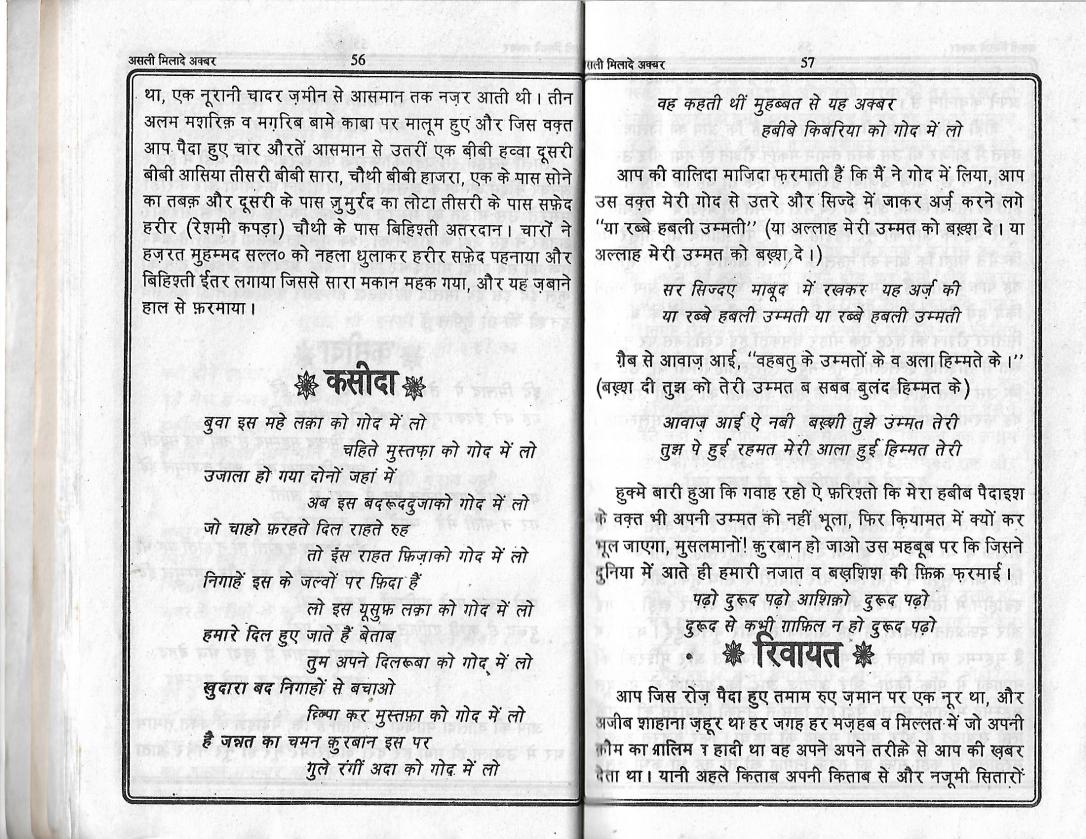 असली मिलादे अक्बर 56
था, एक नूरानी चादर ज़मीन से आसमान तक नज़र आती थी। तीन
अलम मशरिक़ व मग़रिब बामे काबा पर मालूम हुए और जिस वक़्त
आप पैदा हुए चार औरतें आसमान से उतरीं एक बीबी हव्वा दूसरी
बीबी आसिया तीसरी बीबी सारा, चौथी बीबी हाजरा, एक के पास सोने
का तबक़ और दूसरी के पास ज़ुमुर्रद का लोटा तीसरी के पास सफ़ेद
हरीर (रेशमी कपड़ा) चौथी के पास बिहिश्ती अतरदान। चारों ने
हज़रत मुहम्मद सल्ल० को नहला धुलाकर हरीर सफ़ेद पहनाया और
बिहिश्ती ईतर लगाया जिससे सारा मकान महक गया, और यह ज़बाने
हाल से फ़रमाया।
कसीदा
बुवा इस महे लक़ा को गोद में लो
चहिते मुस्तफ़ा को गोद में लो
उजाला हो गया दोनों जहां में
अब इस बदरूददुजाको गोद में लो
जो चाहो फ़रहते दिल राहते रुह
तो इंस राहत फ़िज़ाको गोद में लो
निगाहें इस के जल्वों पर फ़िदा हैं
लो इस यूसुफ़ लक़ा को गोद में लो
हमारे दिल हुए जाते हैं बेताब
तुम अपने दिलरूबा को गोद में लो
खुदारा बद निगाहों से बचाओ
छिप्पा कर मुस्तफ़ा को गोद में लो
है जन्नत का चमन क़ुरबान इस पर
गुले रंगीं अदा को गोद में लो
सली मिलादे अक्बर 57
वह कहती थीं मुहब्बत से यह अक्बर
हबीबे किबरिया को गोद में लो
आप की वालिदा माज़िदा फ़रमाती हैं कि मैं ने गोद में लिया, आप
उस वक़्त मेरी गोद से उतरे और सिज्दे में जाकर अर्ज़ करने लगे
"या रब्बे हबली उम्मती" (या अल्लाह मेरी उम्मत को बख़्श दे। या
अल्लाह मेरी उम्मत को बख़्श दे।)
सर सिज्दए माबूद में रखकर यह अर्ज़ की
या रब्बे हबली उम्मती या रब्बे हबली उम्मती
ग़ैब से आवाज़ आई, "वहबतु के उम्मतों के व अला हिम्मते के।"
(बख़्श दी तुझ को तेरी उम्मत ब सबब बुलंद हिम्मत के)
आवाज़ आई ऐ नबी बख़्शी तुझे उम्मत तेरी
तुझ पे हुई रहमत मेरी आला हुई हिम्मत तेरी
हुक्मे बारी हुआ कि गवाह रहो ऐ फ़रिश्तो कि मेरा हबीब पैदाइश
के वक़्त भी अपनी उम्मत को नहीं भूला, फिर क़ियामत में क्यों कर
भूल जाएगा, मुसलमानों! क़ुरबान हो जाओ उस महबूब पर कि जिसने
दुनिया में आते ही हमारी नजात व बख़शिश की फ़िक्र फ़रमाई।
पढ़ो दुरूद पढ़ो आशिक़ो दुरूद पढ़ो
दुरूद से कभी ग़ाफ़िल न हो दुरूद पढो
रिवायत
आप जिस रोज़ पैदा हुए तमाम रुए ज़मान पर एक नूर था, और
अजीब शाहाना ज़हूर था हर जगह हर मज़हब व मिल्लत में जो अपनी
क़ौम का आलिम व हादी था वह अपने अपने तरीक़े से आप की ख़बर
देता था। यानी अहले किताब अपनी किताब से और नजूमी सितारों